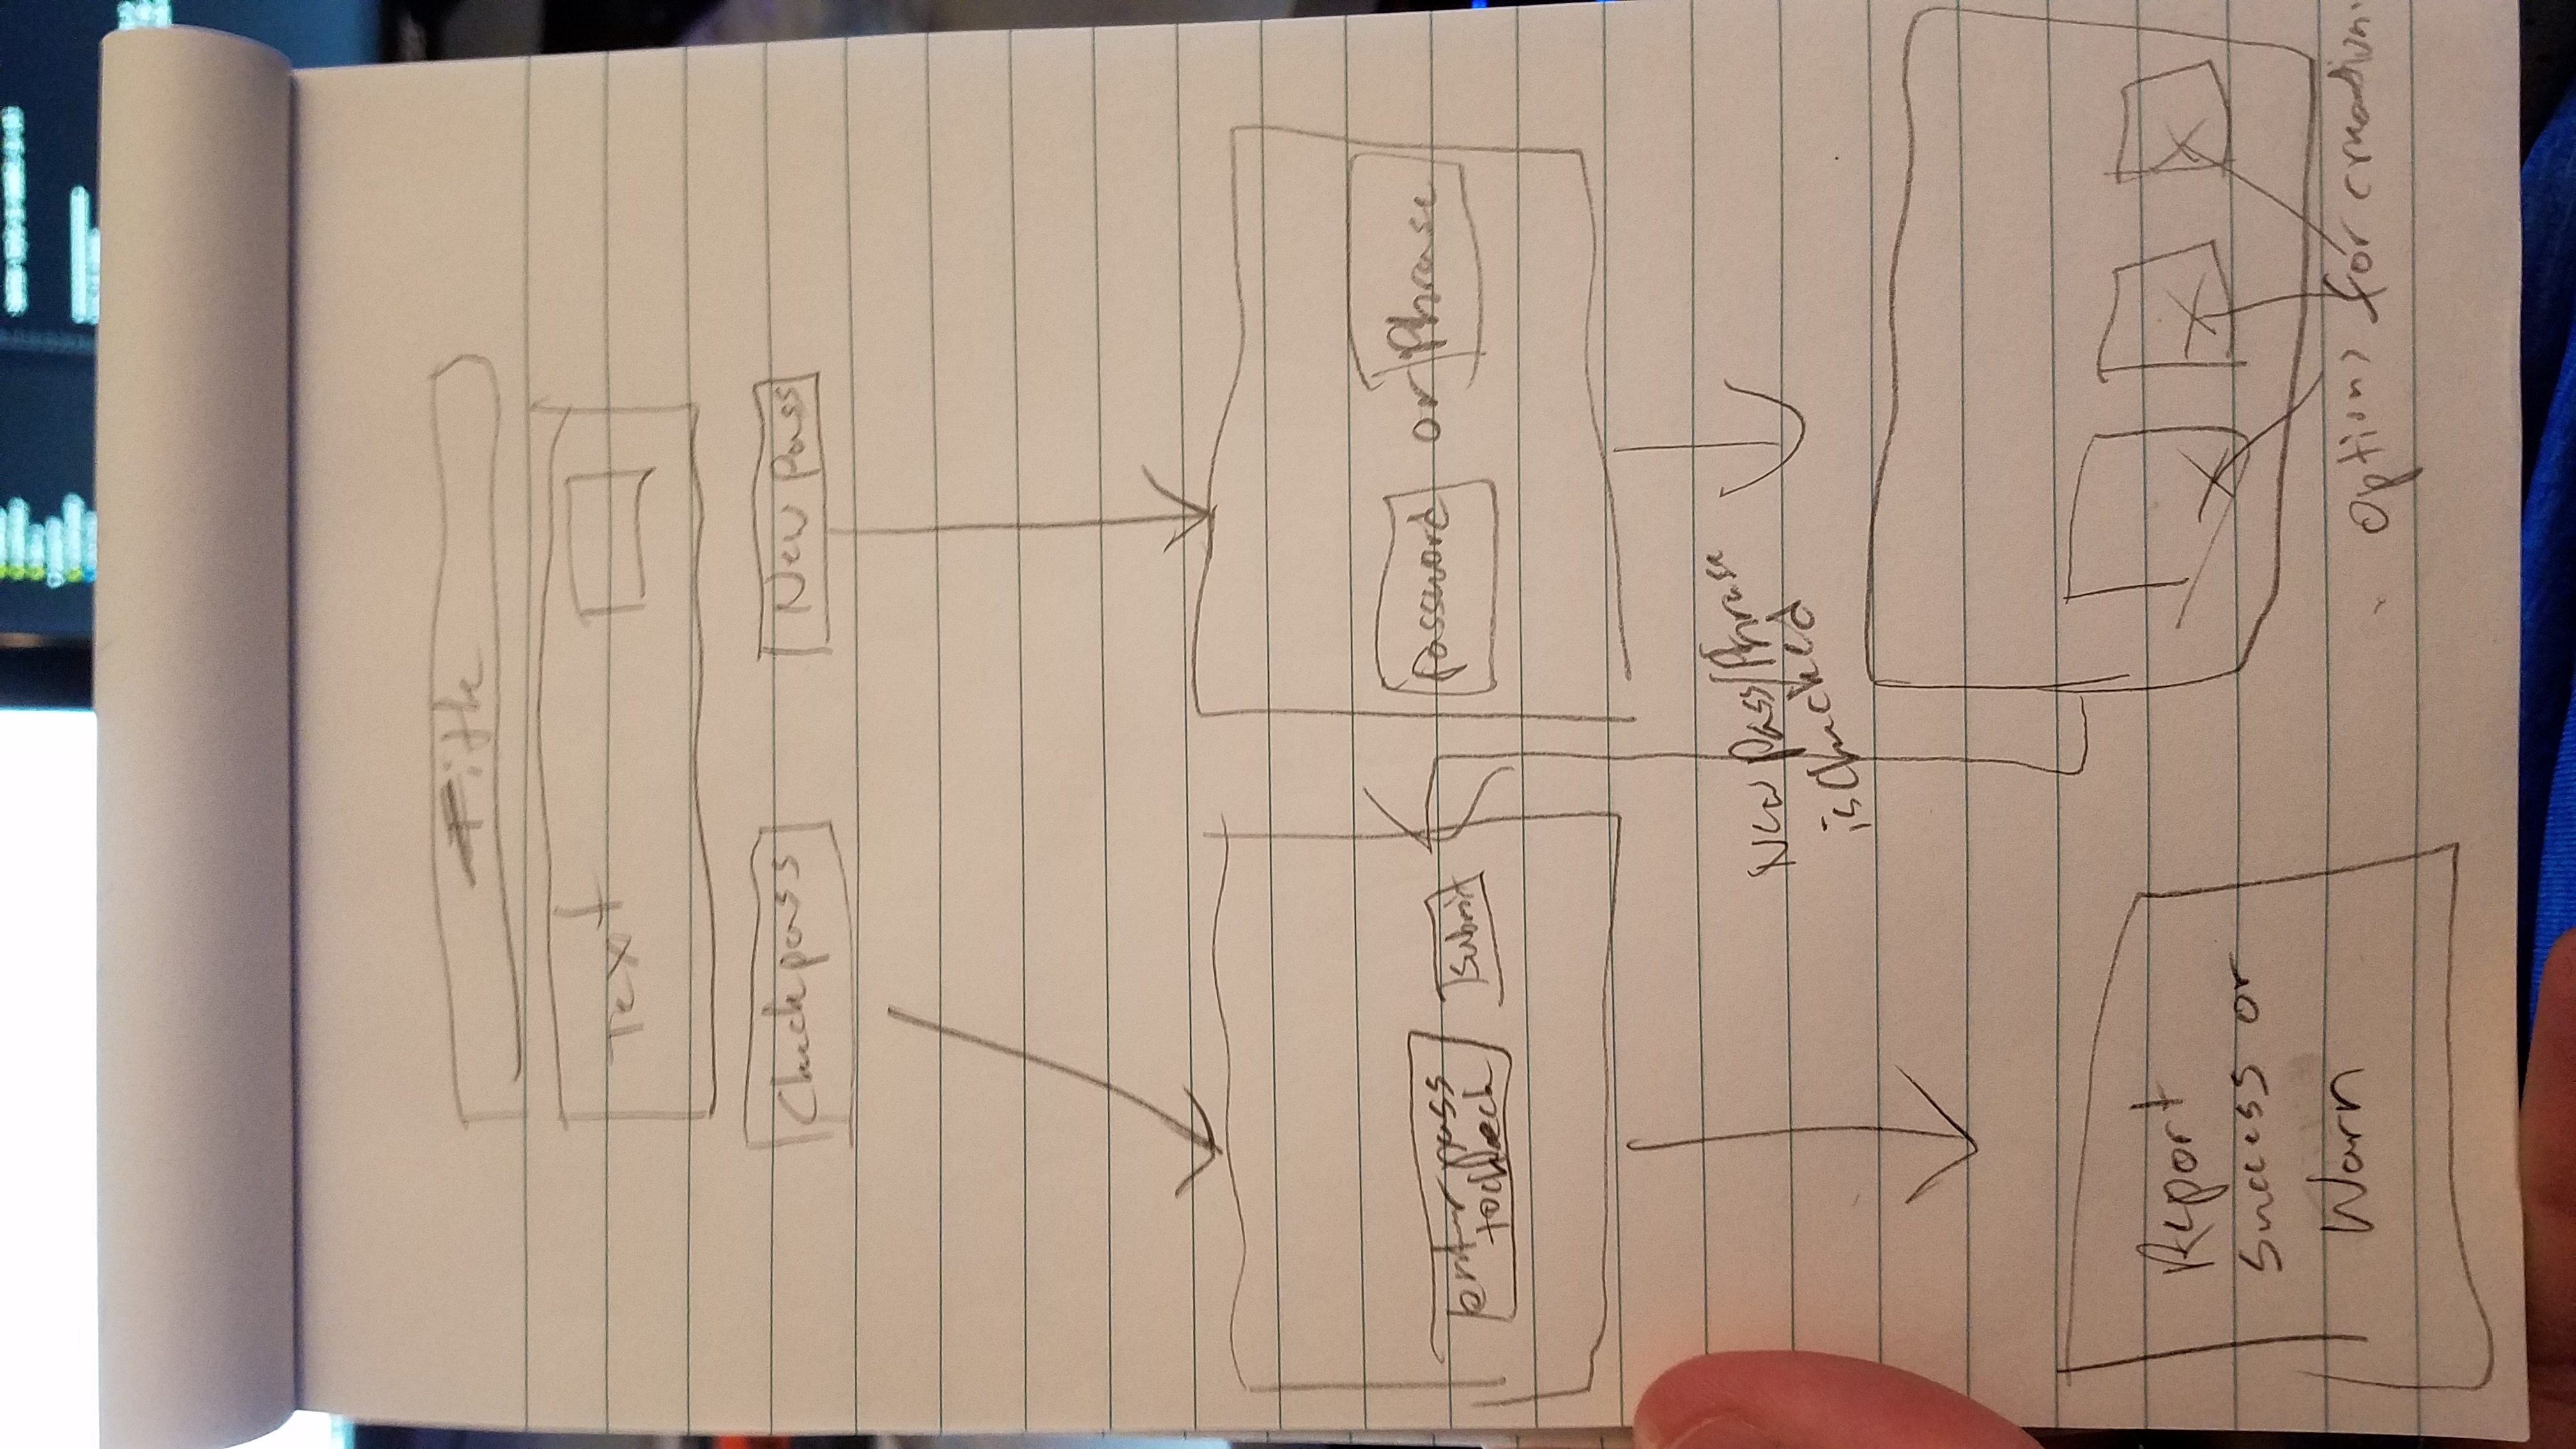 Title
Text
Check pass
New Pass
enter pass
to check
submit
password or Phrase
New Pass/Phrase
is Checked
Report
Success or
Warn
Options for creation